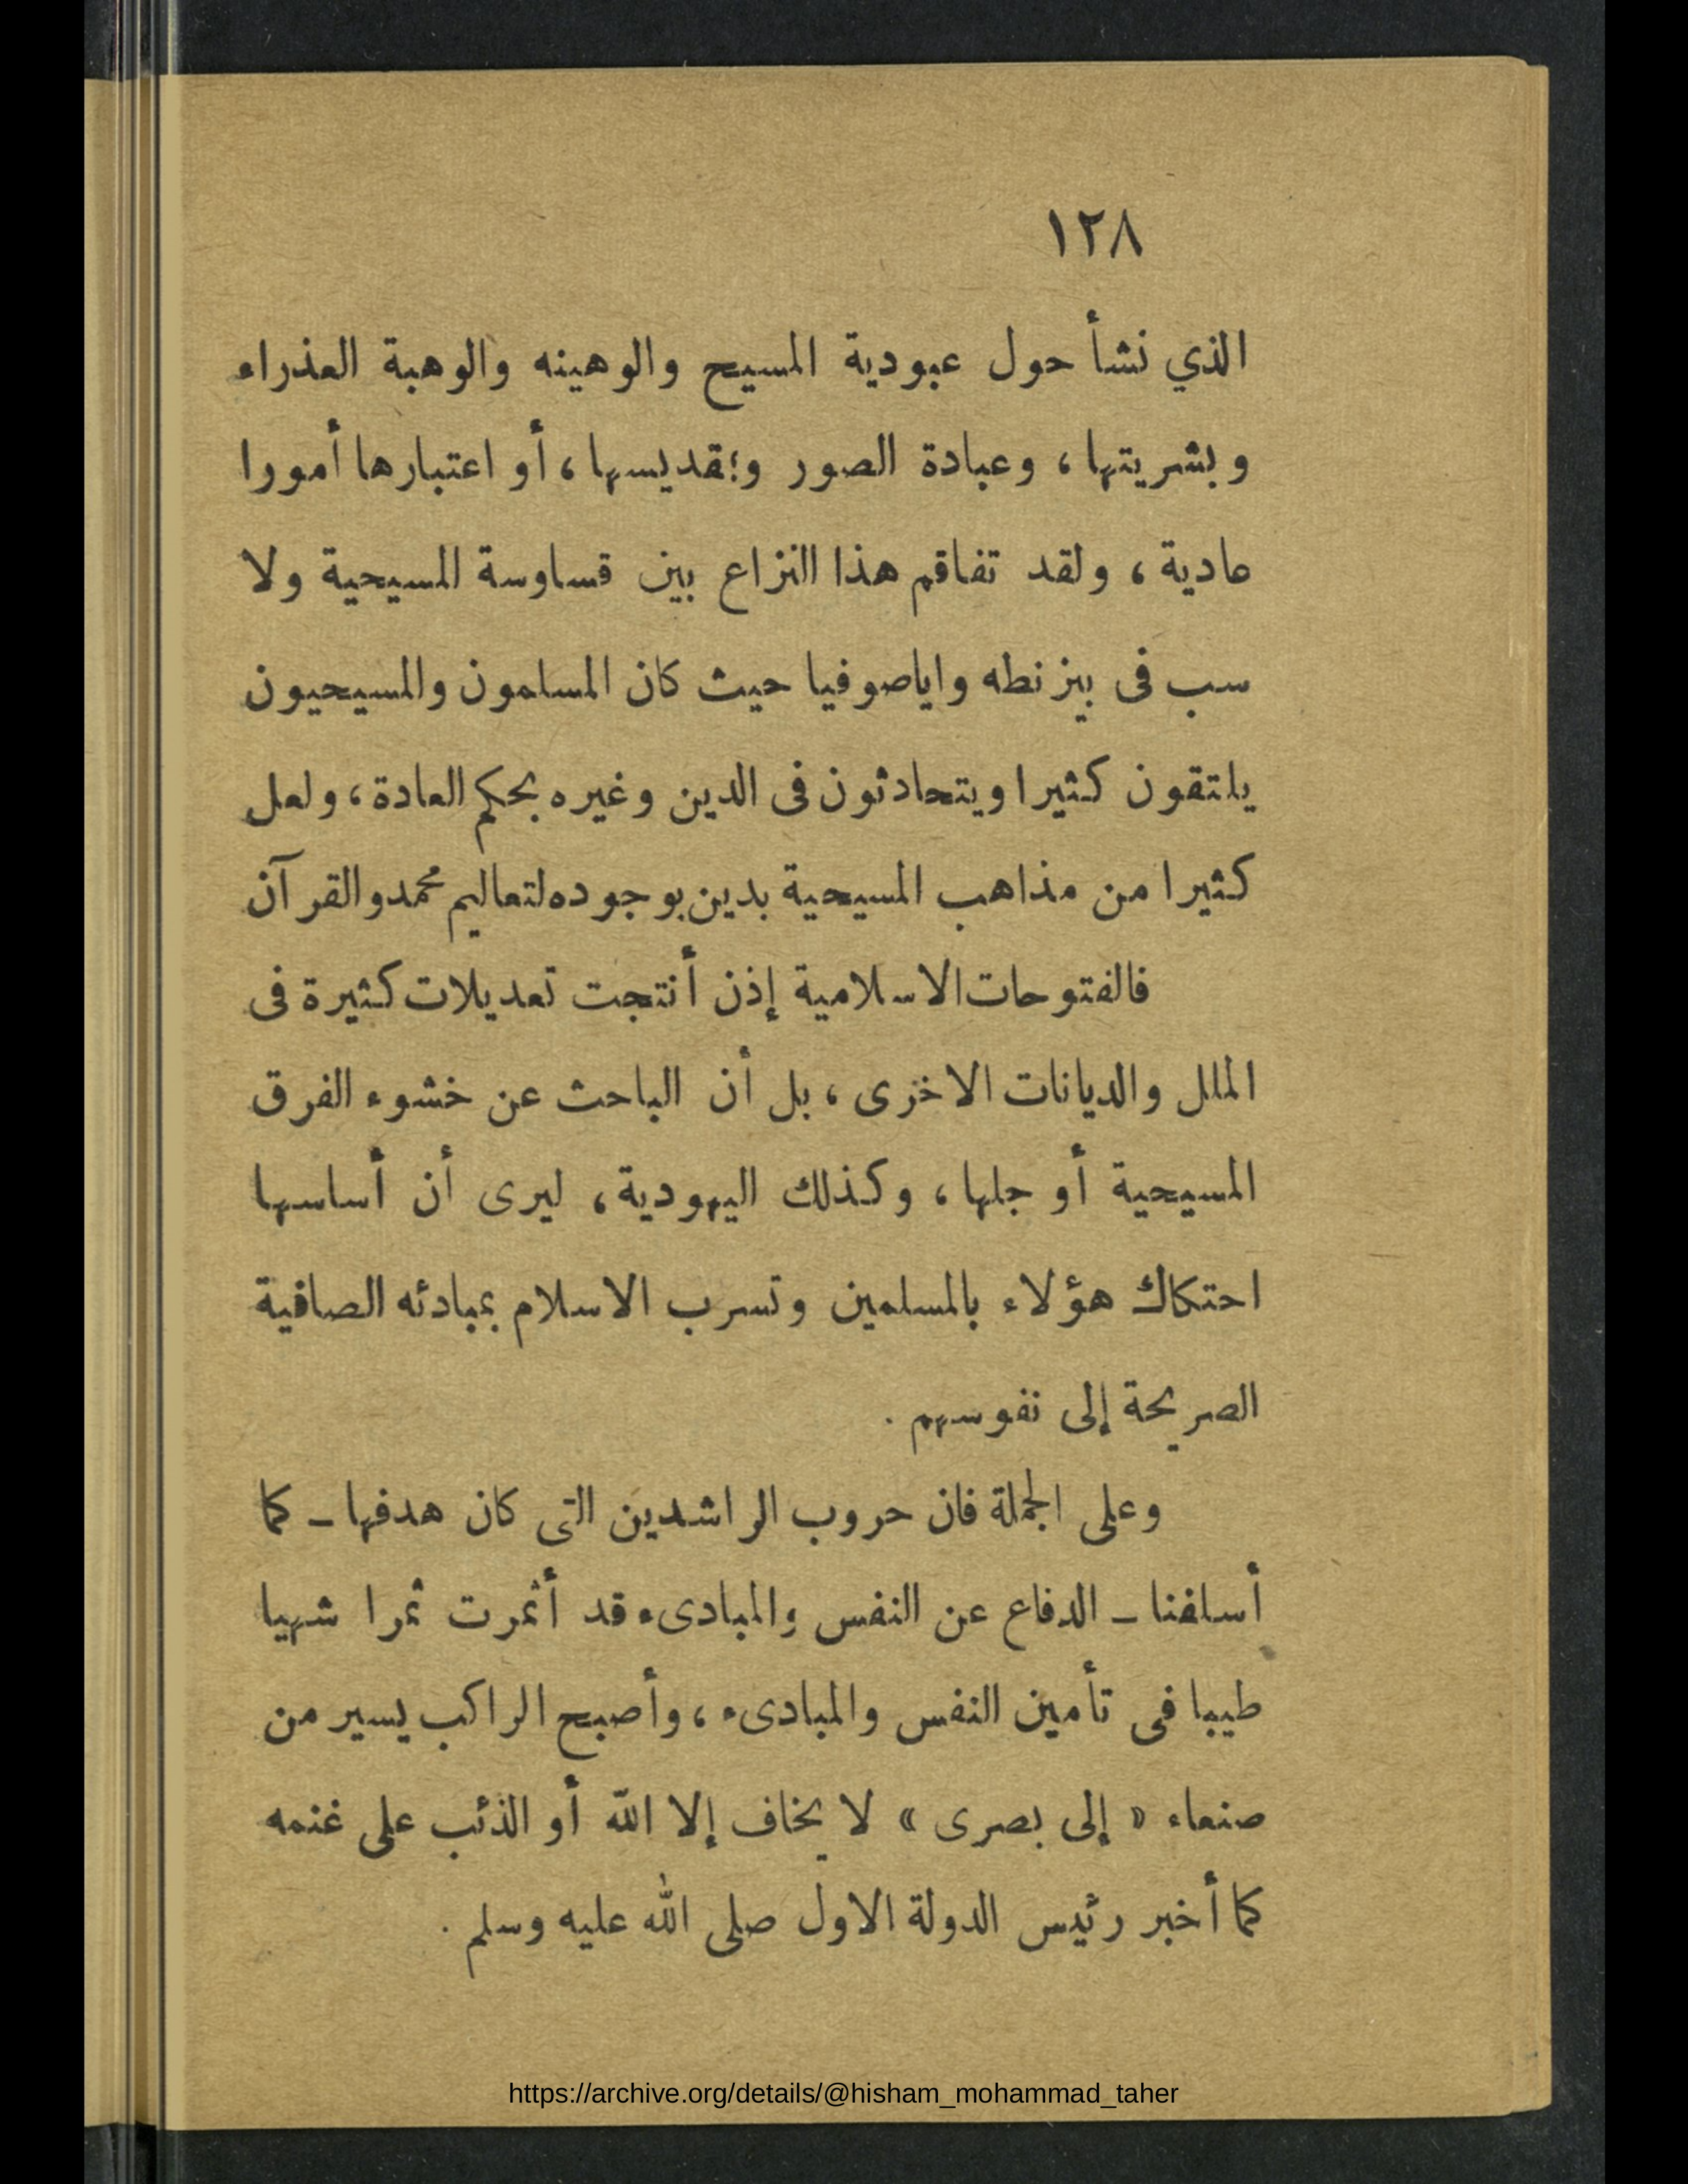 ١٢٨
الذي نشأ حول عبودية المسيح والوهينه والوهبة العذراء
وبشريتها ، وعبادة الصور و؛قديسها ، أو اعتبارها أمورا
مادية ، ولقد تفاقم هذا النزاع بين قساوسة المسيحية ولا
سب فى بيزنطه واياصوفيا حيث كان المسلمون والمسيحيون
يلتقون كثيرا ويتحادثون فى الدين وغيره بحكم العادة ، ولعل
كثيرا من مذاهب المسيحية بدين بوجوده لتعاليم محمد والقرآن
فالفتوحات الاسلامية إذن أنتجت تعديلات كثيرة فى
الملل والديانات الاخرى ، بل أن الباحث عن خشوء الفرق
المسيحية أو جلها ، وكذلك اليهودية ، ليرى أن أساسها
احتكاك هؤلاء بالمسلمين وتسرب الاسلام بمبادئه الصافية
الصريحة إلى نفوسهم .
وعلى الجملة فان حروب الراشدين التى كان هدفها ــ كما
أسلفنا ــ الدفاع عن النفس والمبادىء قد أثمرت ثمرا شهيا
طيبا فى تأمين النفس والمبادىء ، وأصبح الراكب يسير من
صنعاء « إلى بصرى » لا يخاف إلا الله أو الذئب على غنمه
كما أخبر رئيس الدولة الاول صلى الله عليه وسلم .
https://archive.org/details/@hisham_mohammad_taher